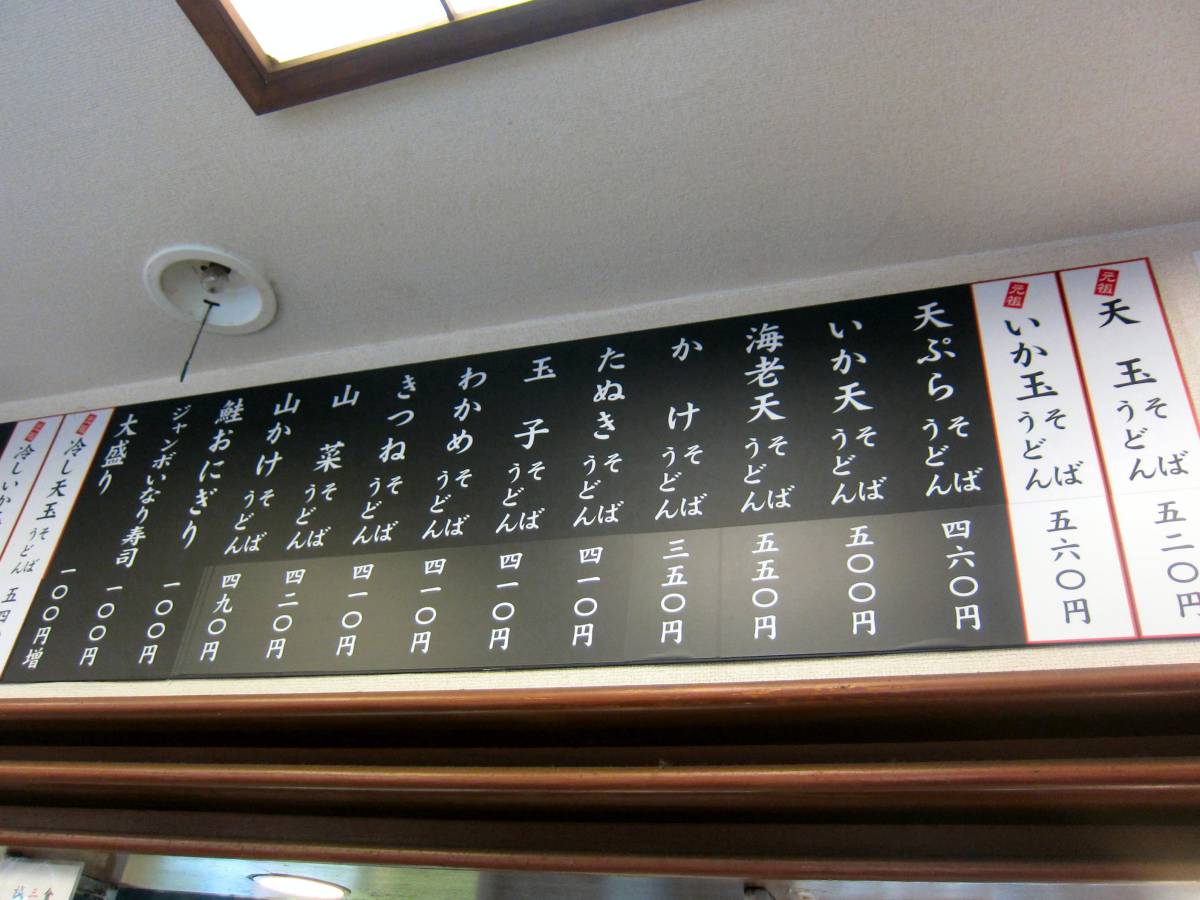 元祖
天玉 そば うどん 五二〇円
元祖
いか玉 そば うどん 五六〇円
天ぷら そば うどん 四六〇円
いか天 そば うどん 五〇〇円
海老天 そば うどん 五五〇円
かけ そば うどん 三五〇円
たぬき そば うどん 四一〇円
玉子 そば うどん 四一〇円
わかめ そば うどん 四一〇円
きつね そば うどん 四一〇円
山菜 そば うどん 四二〇円
山かけ そば うどん 四九〇円
鮭おにぎり 一〇〇円
ジャンボいなり寿司 一〇〇円
大盛り 一〇〇円増
冷し天玉 そば うどん 五四
冷しいか